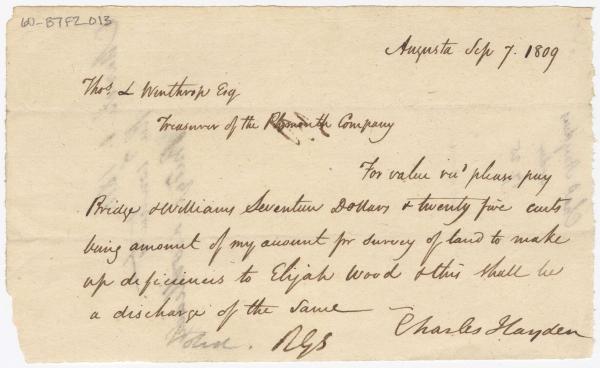 60-B7F2_013
Augusta Sep 7. 1809
Thos. L Winthrop Esq
Treasurer of the Plymouth Company
For value rec'd please pay
Bridge & Williams Seventeen Dollars & twenty five cents
being amount of my account for survey of land to make
up deficiencies to Elijah Wood & this shall be
a discharge of the same
Charles Hayden